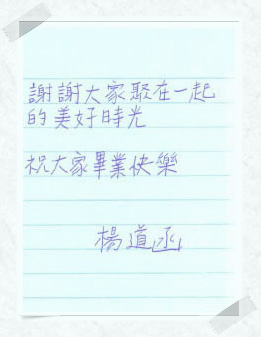 謝謝大家聚在一起
的美好時光
祝大家畢業快樂
楊道函